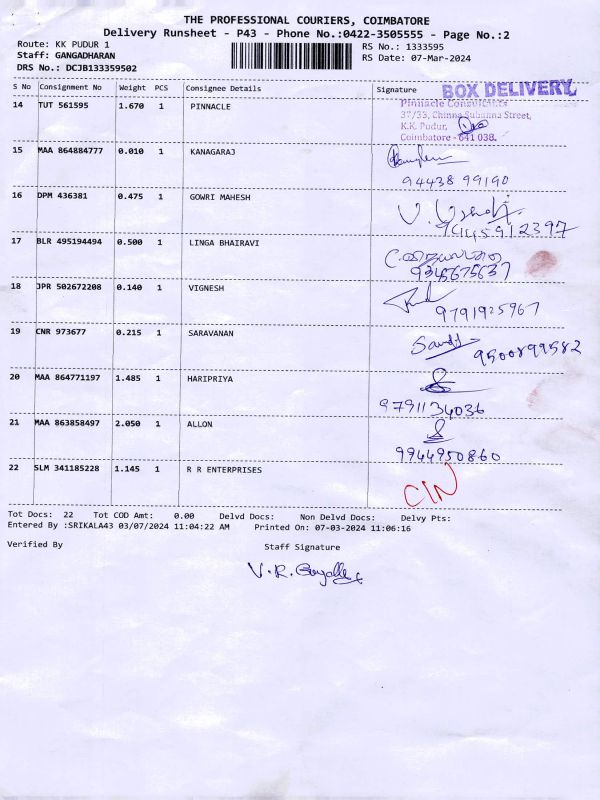 THE PROFESSIONAL COURIERS, COIMBATORE
Delivery Runsheet - P43 - Phone No.:0422-3505555 - Page No.:2
Route: KK PUDUR 1
RS No.: 1333595
Staff: GANGADHARAN
RS Date: 07-Mar-2024
DRS No.: DCJB133359502
S No Consignment No Weight PCS Consignee Details Signature
BOX DELIVERY
14 TUT 561595 1.670 1 PINNACLE
Pinnacle Consultants
37/33, Chinna Subanna Street,
K.K. Pudur,
Coimbatore - 641 038.
15 MAA 864884777 0.010 1 KANAGARAJ
94438 99190
16 DPM 436381 0.475 1 GOWRI MAHESH
9445912397
17 BLR 495194494 0.500 1 LINGA BHAIRAVI
9345675637
18 JPR 502672208 0.140 1 VIGNESH
9791925967
19 CNR 973677 0.215 1 SARAVANAN
9500899582
20 MAA 864771197 1.485 1 HARIPRIYA
9791134036
21 MAA 863858497 2.050 1 ALLON
9944950860
22 SLM 341185228 1.145 1 R R ENTERPRISES
CIN
Tot Docs: 22 Tot COD Amt: 0.00 Delvd Docs: Non Delvd Docs: Delvy Pts:
Entered By :SRIKALA43 03/07/2024 11:04:22 AM Printed On: 07-03-2024 11:06:16
Verified By
Staff Signature